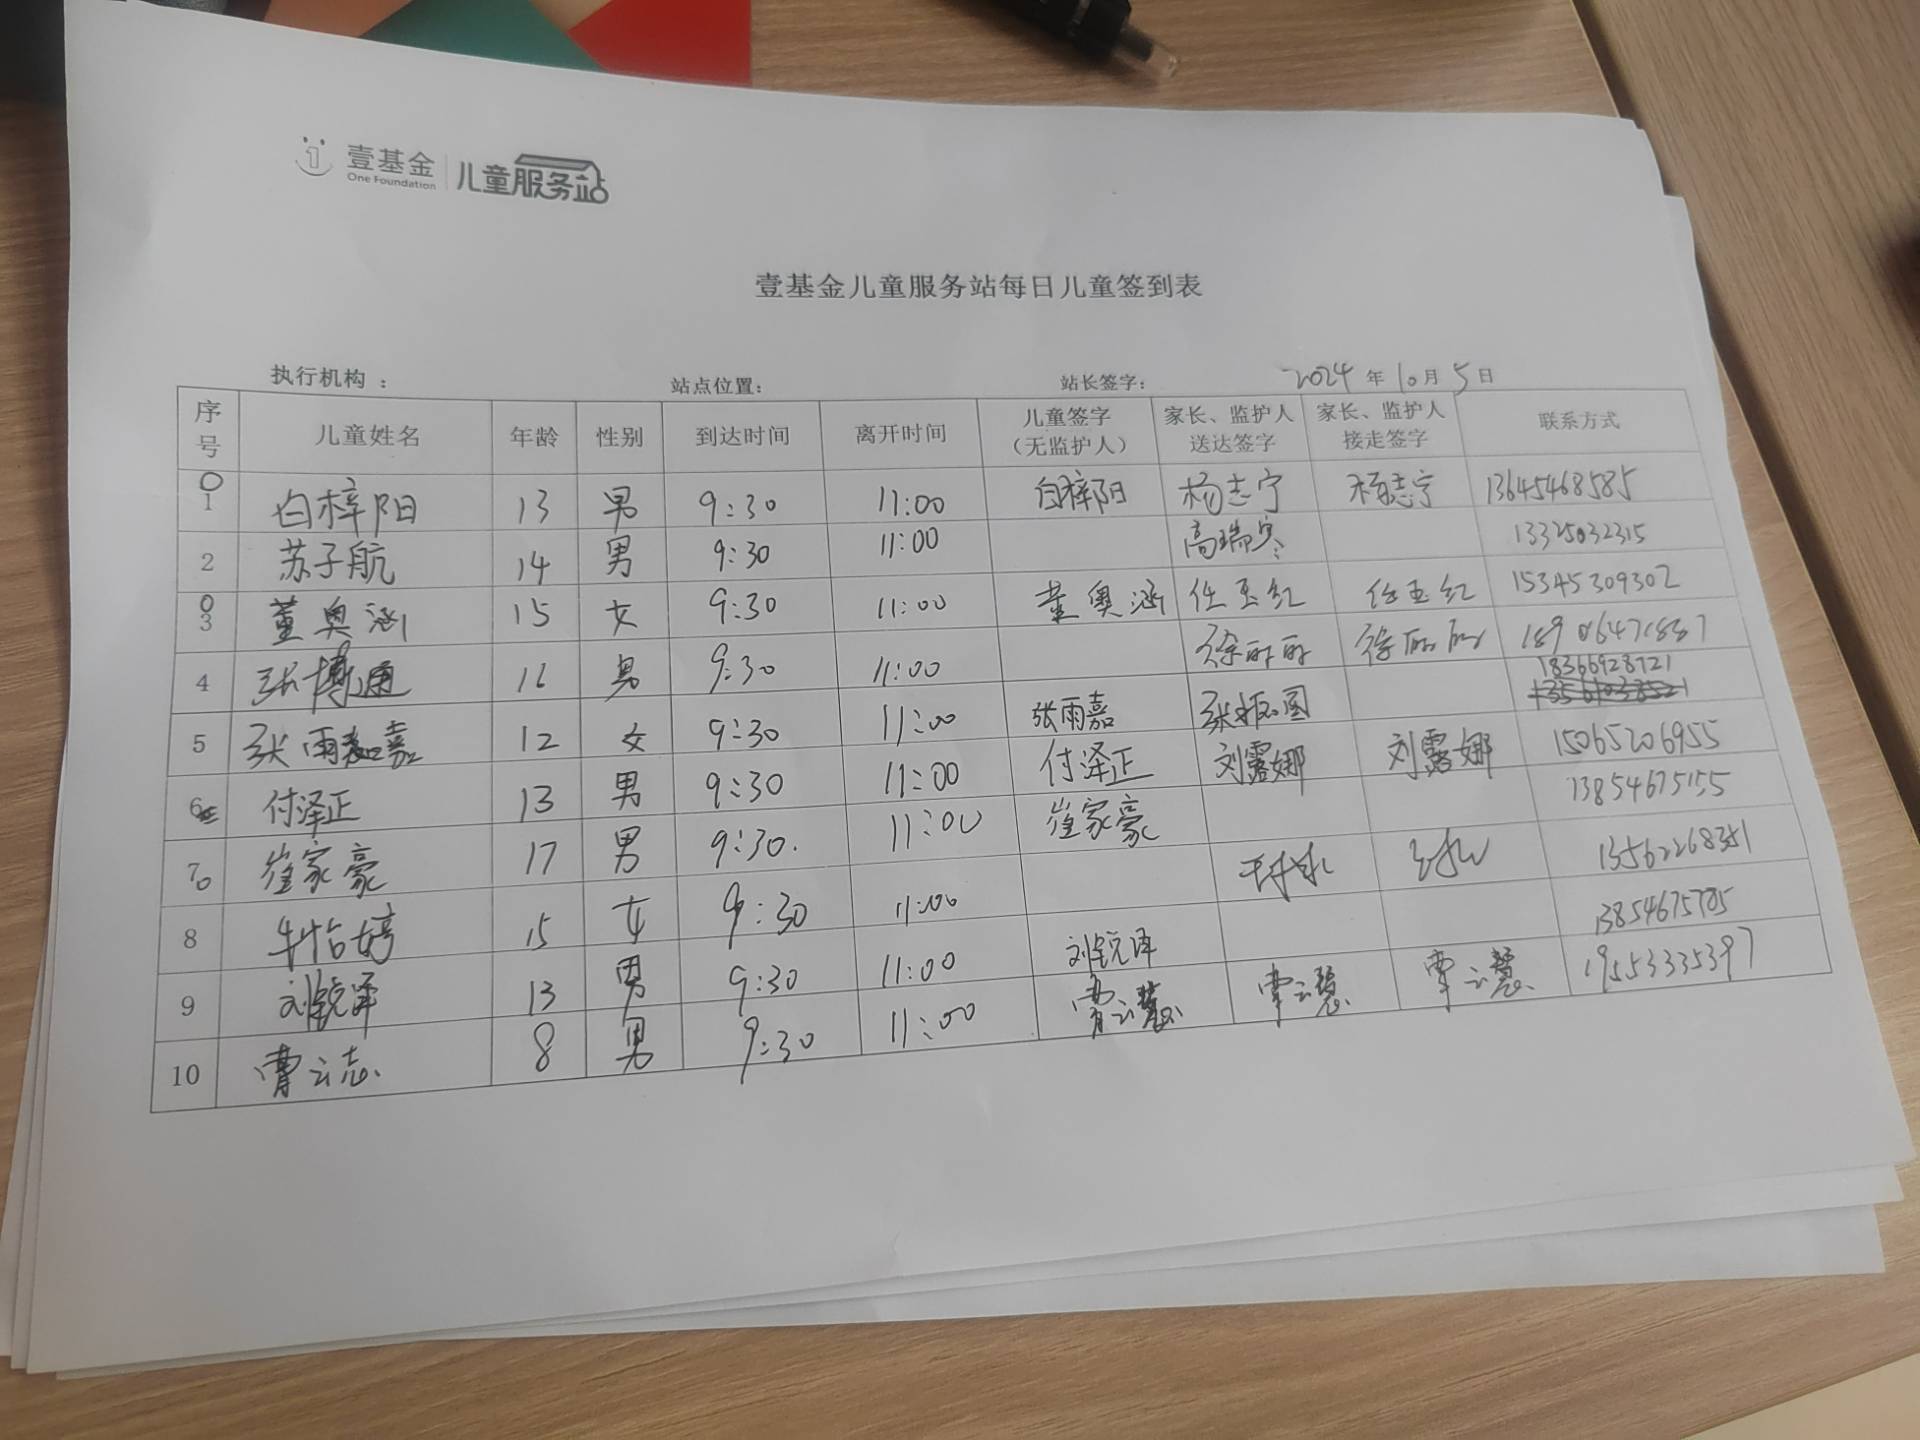 壹基金 儿童服务站
One Foundation
壹基金儿童服务站每日儿童签到表
执行机构： 站点位置： 站长签字： 2024 年 10 月 5 日
序号 儿童姓名 年龄 性别 到达时间 离开时间 儿童签字（无监护人） 家长、监护人送达签字 家长、监护人接走签字 联系方式
1 白梓阳 13 男 9:30 11:00 白梓阳 杨志宁 杨志宁 13645468585
2 苏子航 14 男 9:30 11:00 高瑞 13325032315
3 董奥涵 15 女 9:30 11:00 董奥涵 任玉红 任玉红 15345309302
4 张博通 16 男 9:30 11:00 徐丽丽 徐丽丽
5 张雨嘉 12 女 9:30 11:00 张雨嘉 张振国 18366928721
6 付泽正 13 男 9:30 11:00 付泽正 刘露娜 刘露娜 15065206955
7 崔家豪 17 男 9:30 11:00 崔家豪 13854675155
8 牛怡婷 15 女 9:30 11:00
9 刘锐泽 13 男 9:30 11:00 刘锐泽 13854675785
10 曹云志 8 男 9:30 11:00 曹云慧 曹云慧 曹云慧 19553335397